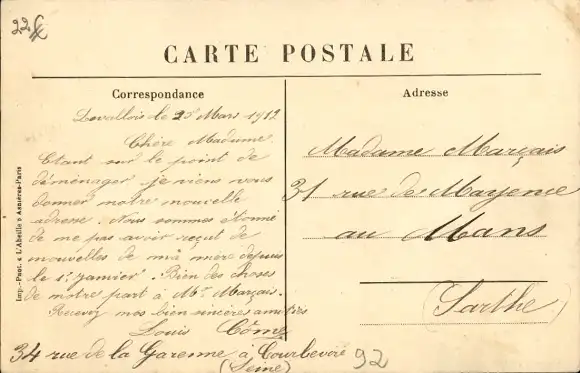 22
CARTE POSTALE
Correspondance
Levallois le 25 Mars 1912
Chère Madame.
Etant sur le point de
déménager je viens vous
donner notre nouvelle
adresse. Nous sommes étonné
de ne pas avoir reçut de
nouvelles de ma mère depuis
le 1er Janvier. Bien des choses
de notre part à Mr Marçais.
Recevez nos bien sincères amitiés
Louis Côme
34 rue de la Garenne à Courbevoie
(Seine)
92
Adresse
Madame Marçais
31 rue de Mayence
au Mans
Sarthe
Imp.-Phot. « L'Abeille » Asnières-Paris